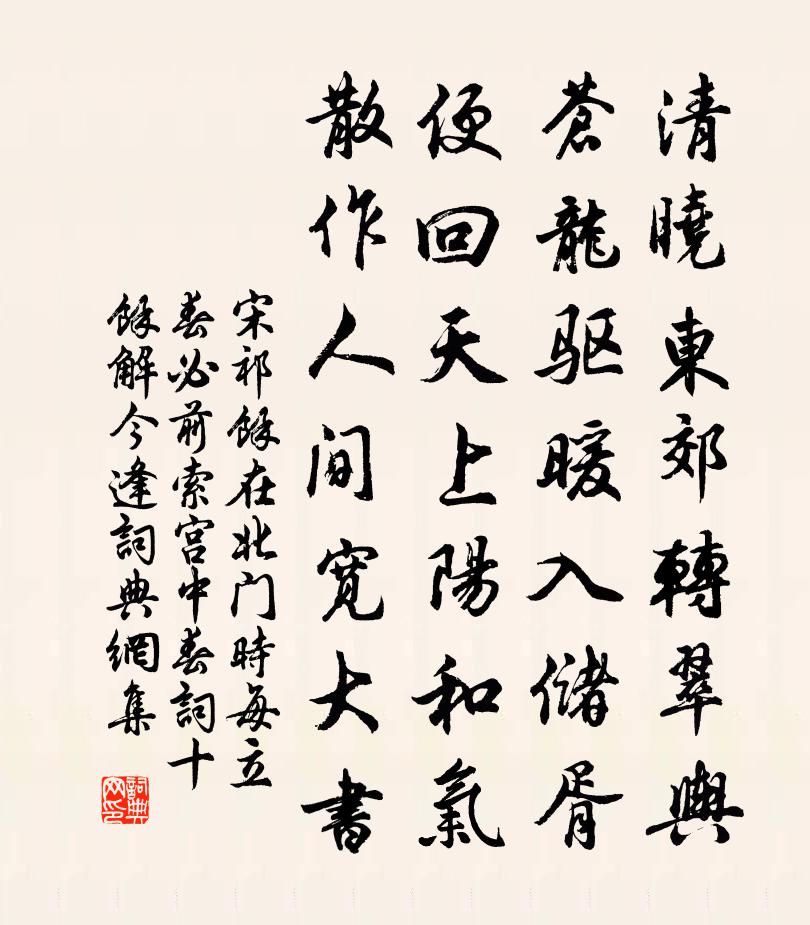 清曉東郊轉翠輿
蒼龍驱暖入儲胥
便回天上陽和氣
散作人间宽大書
宋祁馀在北门時每立
春必前索宫中春詞十
馀解今逢詞典網集
詞典网印